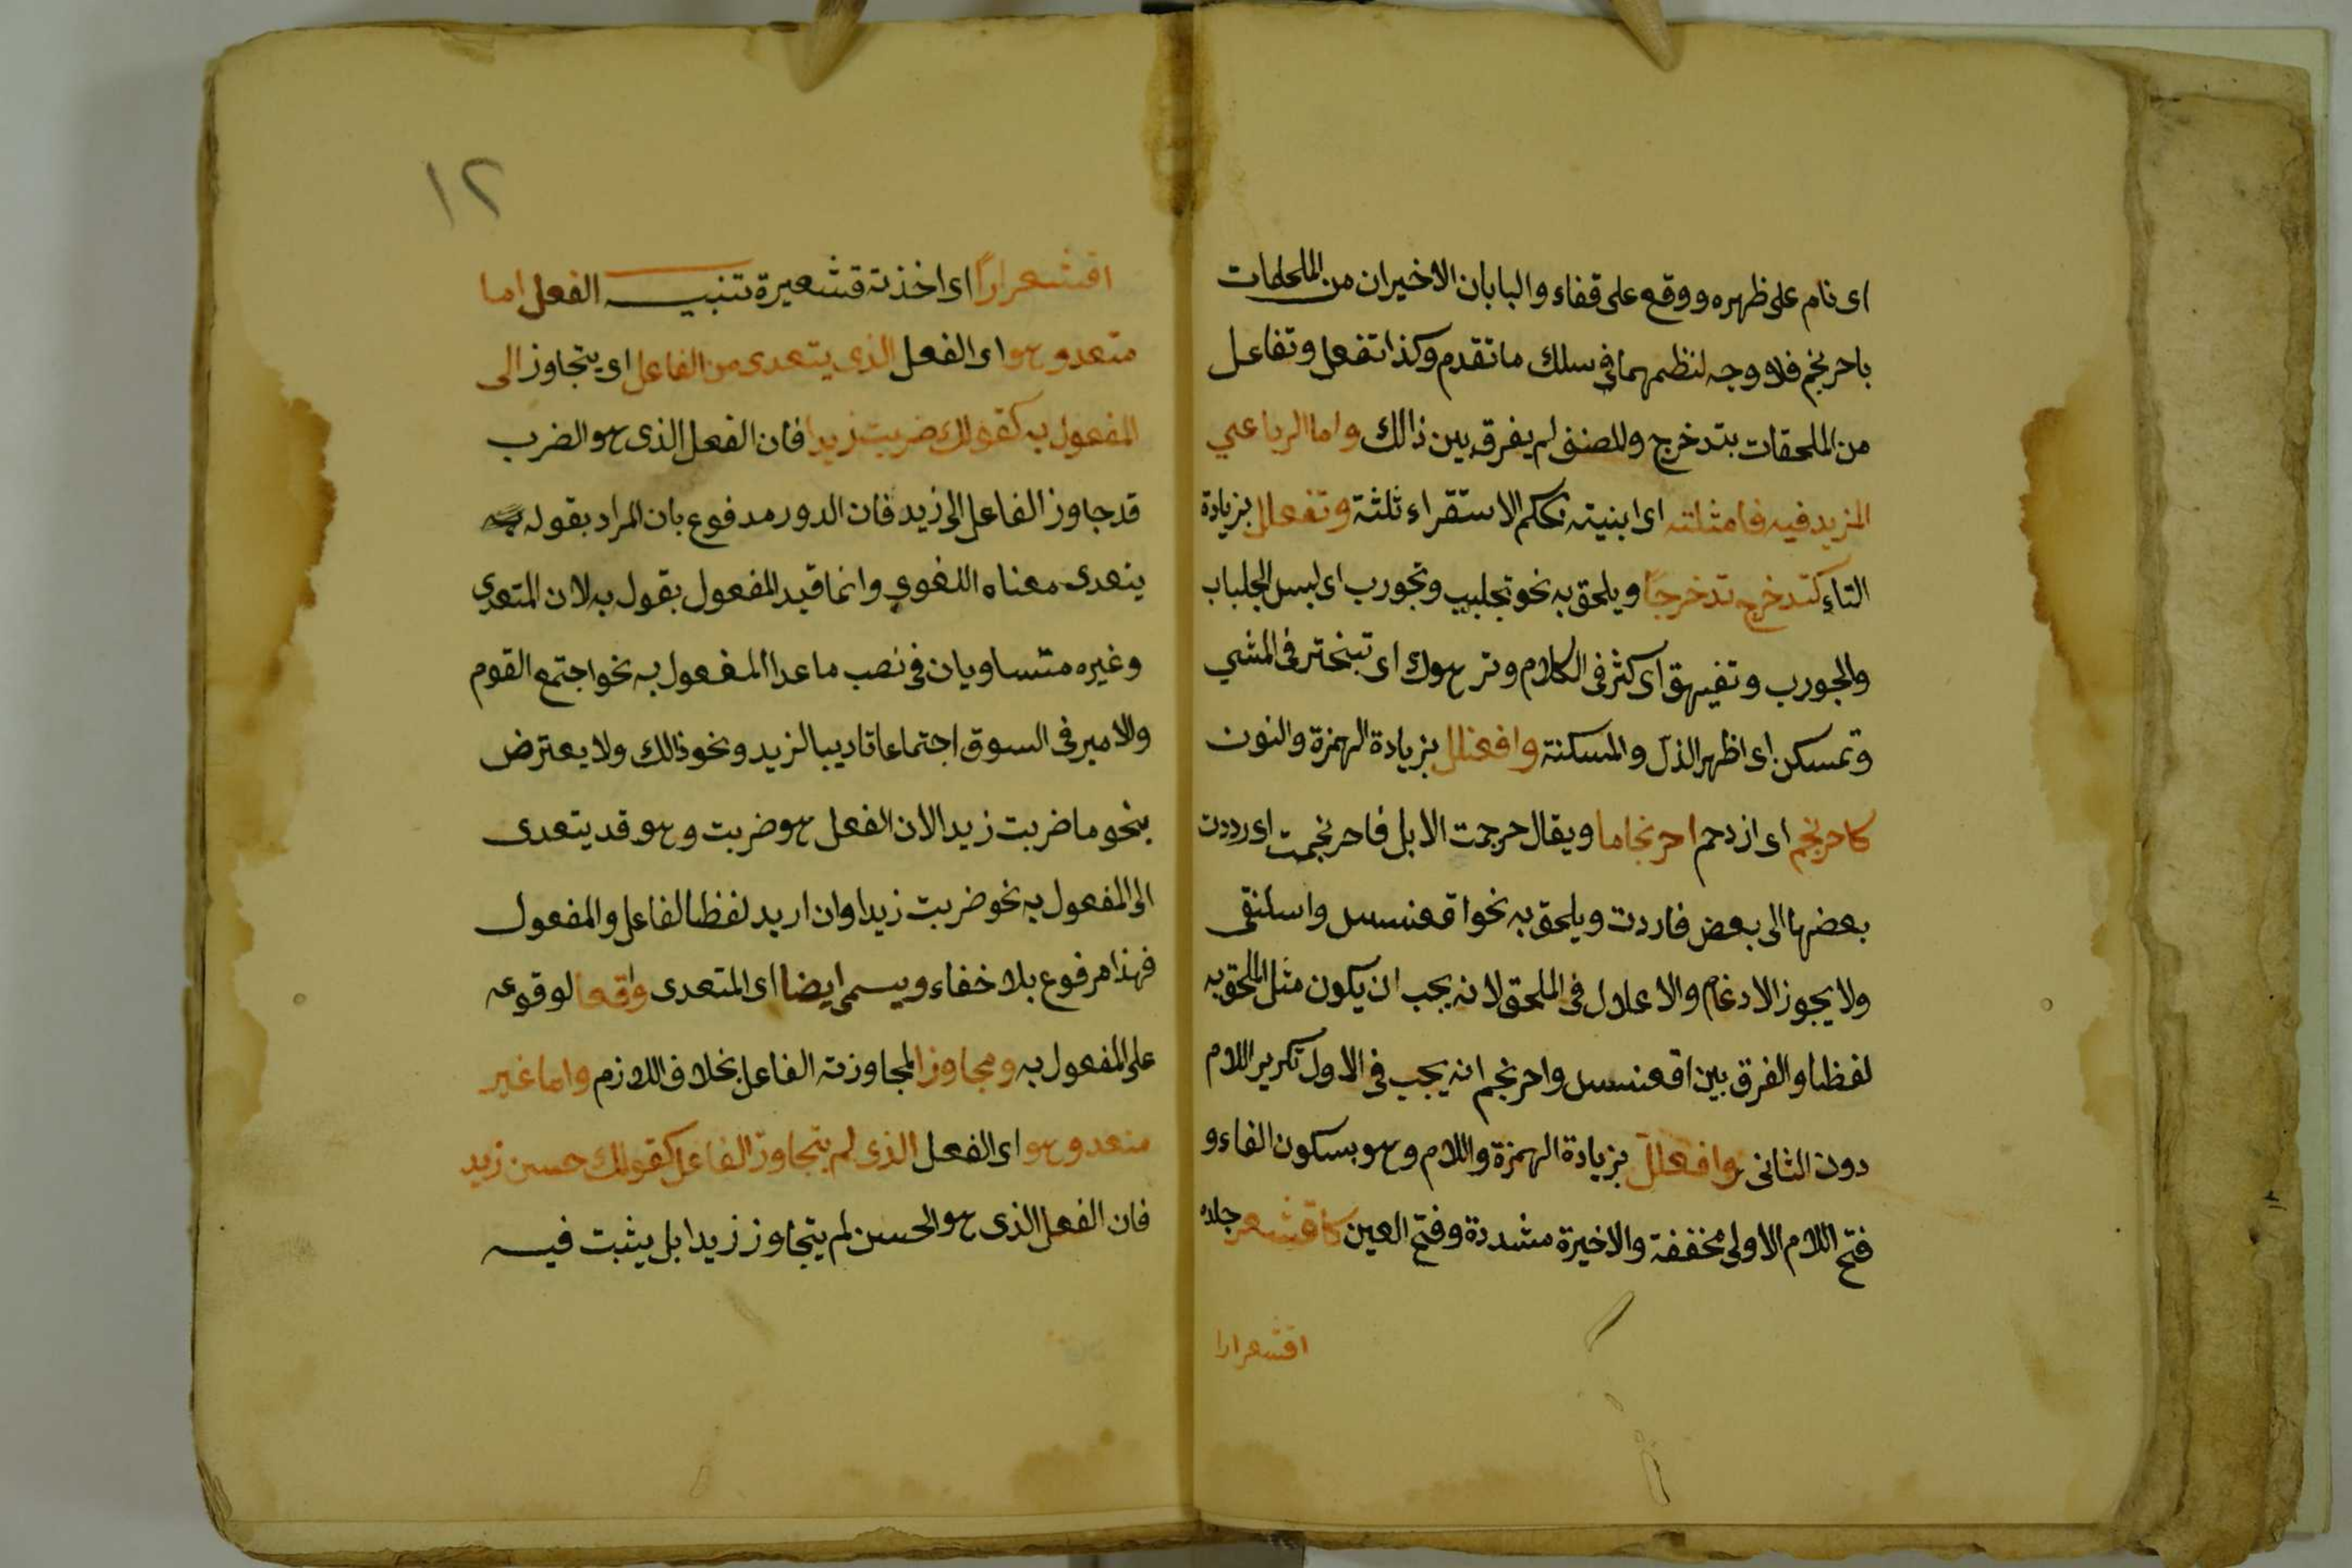 اى نام على ظهره ووقع على قفاء والبابان الاخيران من الملحقات
باحرنجم فلا وجه لنظمهما فى سلك ما تقدم وكذا تفعل وتفاعل
من الملحقات بتدخرج والمصنف لم يفرق بين ذالك واما الرباعي
المزيد فيه فامثلته اى ابنيته بحكم الاستقراء ثلثة وتفعلل بزيادة
التاء كتدخرج تدخرجًا ويلحق به نحو تجلبب وتجورب اى لبس الجلباب
والجورب وتفيهق اى كثر فى الكلام وترهوك اى تبختر فى المشي
وتمسكن اى اظهر الذل والمسكنة وافعنلل بزيادة الهمزة والنون
كاحرنجم اى ازدحم احرنجاما ويقال حرجمت الابل فاحرنجمت اى رددت
بعضها الى بعض فارددت ويلحق به نحو اقعنسس واسلنقى
ولا يجوز الادغام والاعلال فى الملحق لانه يجب ان يكون مثل الملحق به
لفظا والفرق بين اقعنسس واحرنجم انه يجب فى الاول تكرير اللام
دون الثانى وافعللّ بزيادة الهمزة واللام وهو بسكون الفاء و
فتح اللام الاولى مخففة والاخيرة مشددة وفتح العين كاقشعر جلده
اقشعرارا
١٢
اقشعرارًا اى اخذته قشعيرة تنبيه الفعل اما
متعد وهو اى الفعل الذى يتعدى من الفاعل اى يتجاوز الى
المفعول به كقولك ضربت زيدا فان الفعل الذى هو الضرب
قد جاوز الفاعل الى زيد فان الدور مدفوع بان المراد بقوله
يتعدى معناه اللغوي وانما قيد المفعول بقول به لان المتعدي
وغيره متساويان فى نصب ما عدا المفعول به نحو اجتمع القوم
والامير فى السوق اجتماعا تاديبا لزيد ونحو ذالك ولا يعترض
بنحو ما ضربت زيدا لان الفعل هو ضربت وهو قد يتعدى
الى المفعول به نحو ضربت زيدا وان اريد لفظا الفاعل والمفعول
فهذا مرفوع بلا خفاء ويسمى ايضا اى المتعدى واقعا لوقوعه
على المفعول به ومجاوزا لمجاوزته الفاعل بخلاف اللازم واما غير
متعد وهو اى الفعل الذى لم يتجاوز الفاعل كقولك حسن زيد
فان الفعل الذى هو الحسن لم يتجاوز زيدا بل يثبت فيه